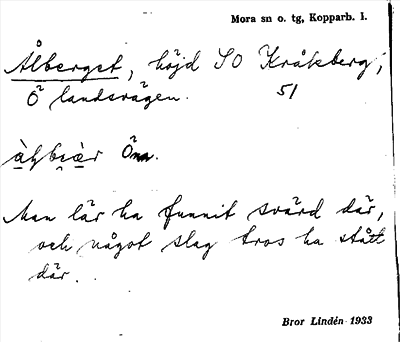 Mora sn o. tg, Kopparb. l.
Ålberget, höjd SO Kråkberg,
Ö landsvägen. 51
Öna.
Man lär ha funnit svärd där,
och något slag tros ha stått
där.
Bror Lindén 1933